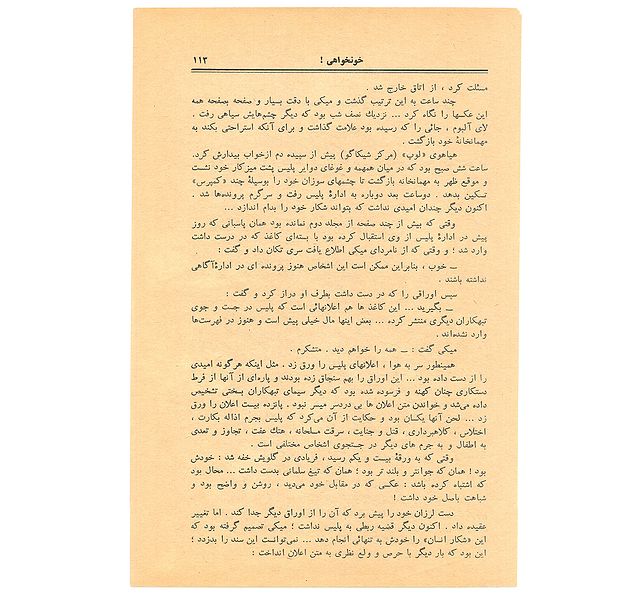 خونخواهی ! ۱۱۳
مسئلت کرد ، از اتاق خارج شد .
چند ساعت به این ترتیب گذشت و میکی با دقت بسیار و صفحه بصفحه همه
این عکسها را نگاه کرد ... نزدیك نصف شب بود که دیگر چشم‌هایش سیاهی رفت .
لای آلبوم ، جائی را که رسیده بود علامت گذاشت و برای آنکه استراحتی بکند به
مهمانخانهٔ خود بازگشت .
هیاهوی «لوپ» (مرکز شیکاگو) پیش از سپیده دم ازخواب بیدارش کرد.
ساعت شش صبح بود که در میان همهمه و غوغای دوایر پلیس پشت میزکار خود نشست
و موقع ظهر به مهمانخانه بازگشت تا چشمهای سوزان خود را بوسیلهٔ چند «کمپرس»
تسکین بدهد . دوساعت بعد دوباره به ادارهٔ پلیس رفت و سرگرم پرونده‌ها شد .
اکنون دیگر چندان امیدی نداشت که بتواند شکار خود را بدام اندازد ...
وقتی که بیش از چند صفحه از مجلد دوم نمانده بود همان پاسبانی که روز
پیش در ادارهٔ پلیس از وی استقبال کرده بود با بسته‌ای کاغذ که در دست داشت
وارد شد ؛ و وقتی که از نامردای میکی اطلاع یافت سری تکان داد و گفت :
ــ خوب ، بنابراین ممکن است این اشخاص هنوز پرونده ای در ادارهٔ آگاهی
نداشته باشند .
سپس اوراقی را که در دست داشت بطرف او دراز کرد و گفت :
ــ بگیرید ... این کاغذ ها هم اعلانهائی است که پلیس در جست و جوی
تبهکاران دیگری منتشر کرده ... بعض اینها مال خیلی پیش است و هنوز در فهرست‌ها
وارد نشده‌اند .
میکی گفت : ــ همه را خواهم دید . متشکرم .
همینطور سر به هوا ، اعلانهای پلیس را ورق زد . مثل اینکه هرگونه امیدی
را از دست داده بود ... این اوراق را بهم سنجاق زده بودند و پاره‌ای از آنها از فرط
دستکاری چنان کهنه و فرسوده شده بود که دیگر سیمای تبهکاران بسختی تشخیص
داده می‌شد و خواندن متن اعلان ها بی دردسر میسر نبود . پانزده بیست اعلان را ورق
زد ... لحن آنها یکسان بود و حکایت از آن می‌کرد که پلیس بجرم اذاله بکارت ،
اختلاس ، کلاهبرداری ، قتل و جنایت ، سرقت مسلحانه ، هتك عفت ، تجاوز و تعدی
به اطفال و به جرم های دیگر در جستجوی اشخاص مختلفی است .
وقتی که به ورقهٔ بیست و یکم رسید ، فریادی در گلویش خفه شد : خودش
بود ! همان که جوانتر و بلند تر بود ؛ همان که تیغ سلمانی بدست داشت ... محال بود
که اشتباه کرده باشد : عکسی که در مقابل خود می‌دید ، روشن و واضح بود و
شباهت باصل خود داشت !
دست لرزان خود را پیش برد که آن را از اوراق دیگر جدا کند . اما تغییر
عقیده داد . اکنون دیگر قضیه ربطی به پلیس نداشت ؛ میکی تصمیم گرفته بود که
این «شکار انسان» را خودش به تنهائی انجام دهد ... نمی‌توانست این سند را بدزدد ؛
این بود که بار دیگر با حرص و ولع نظری به متن اعلان انداخت :